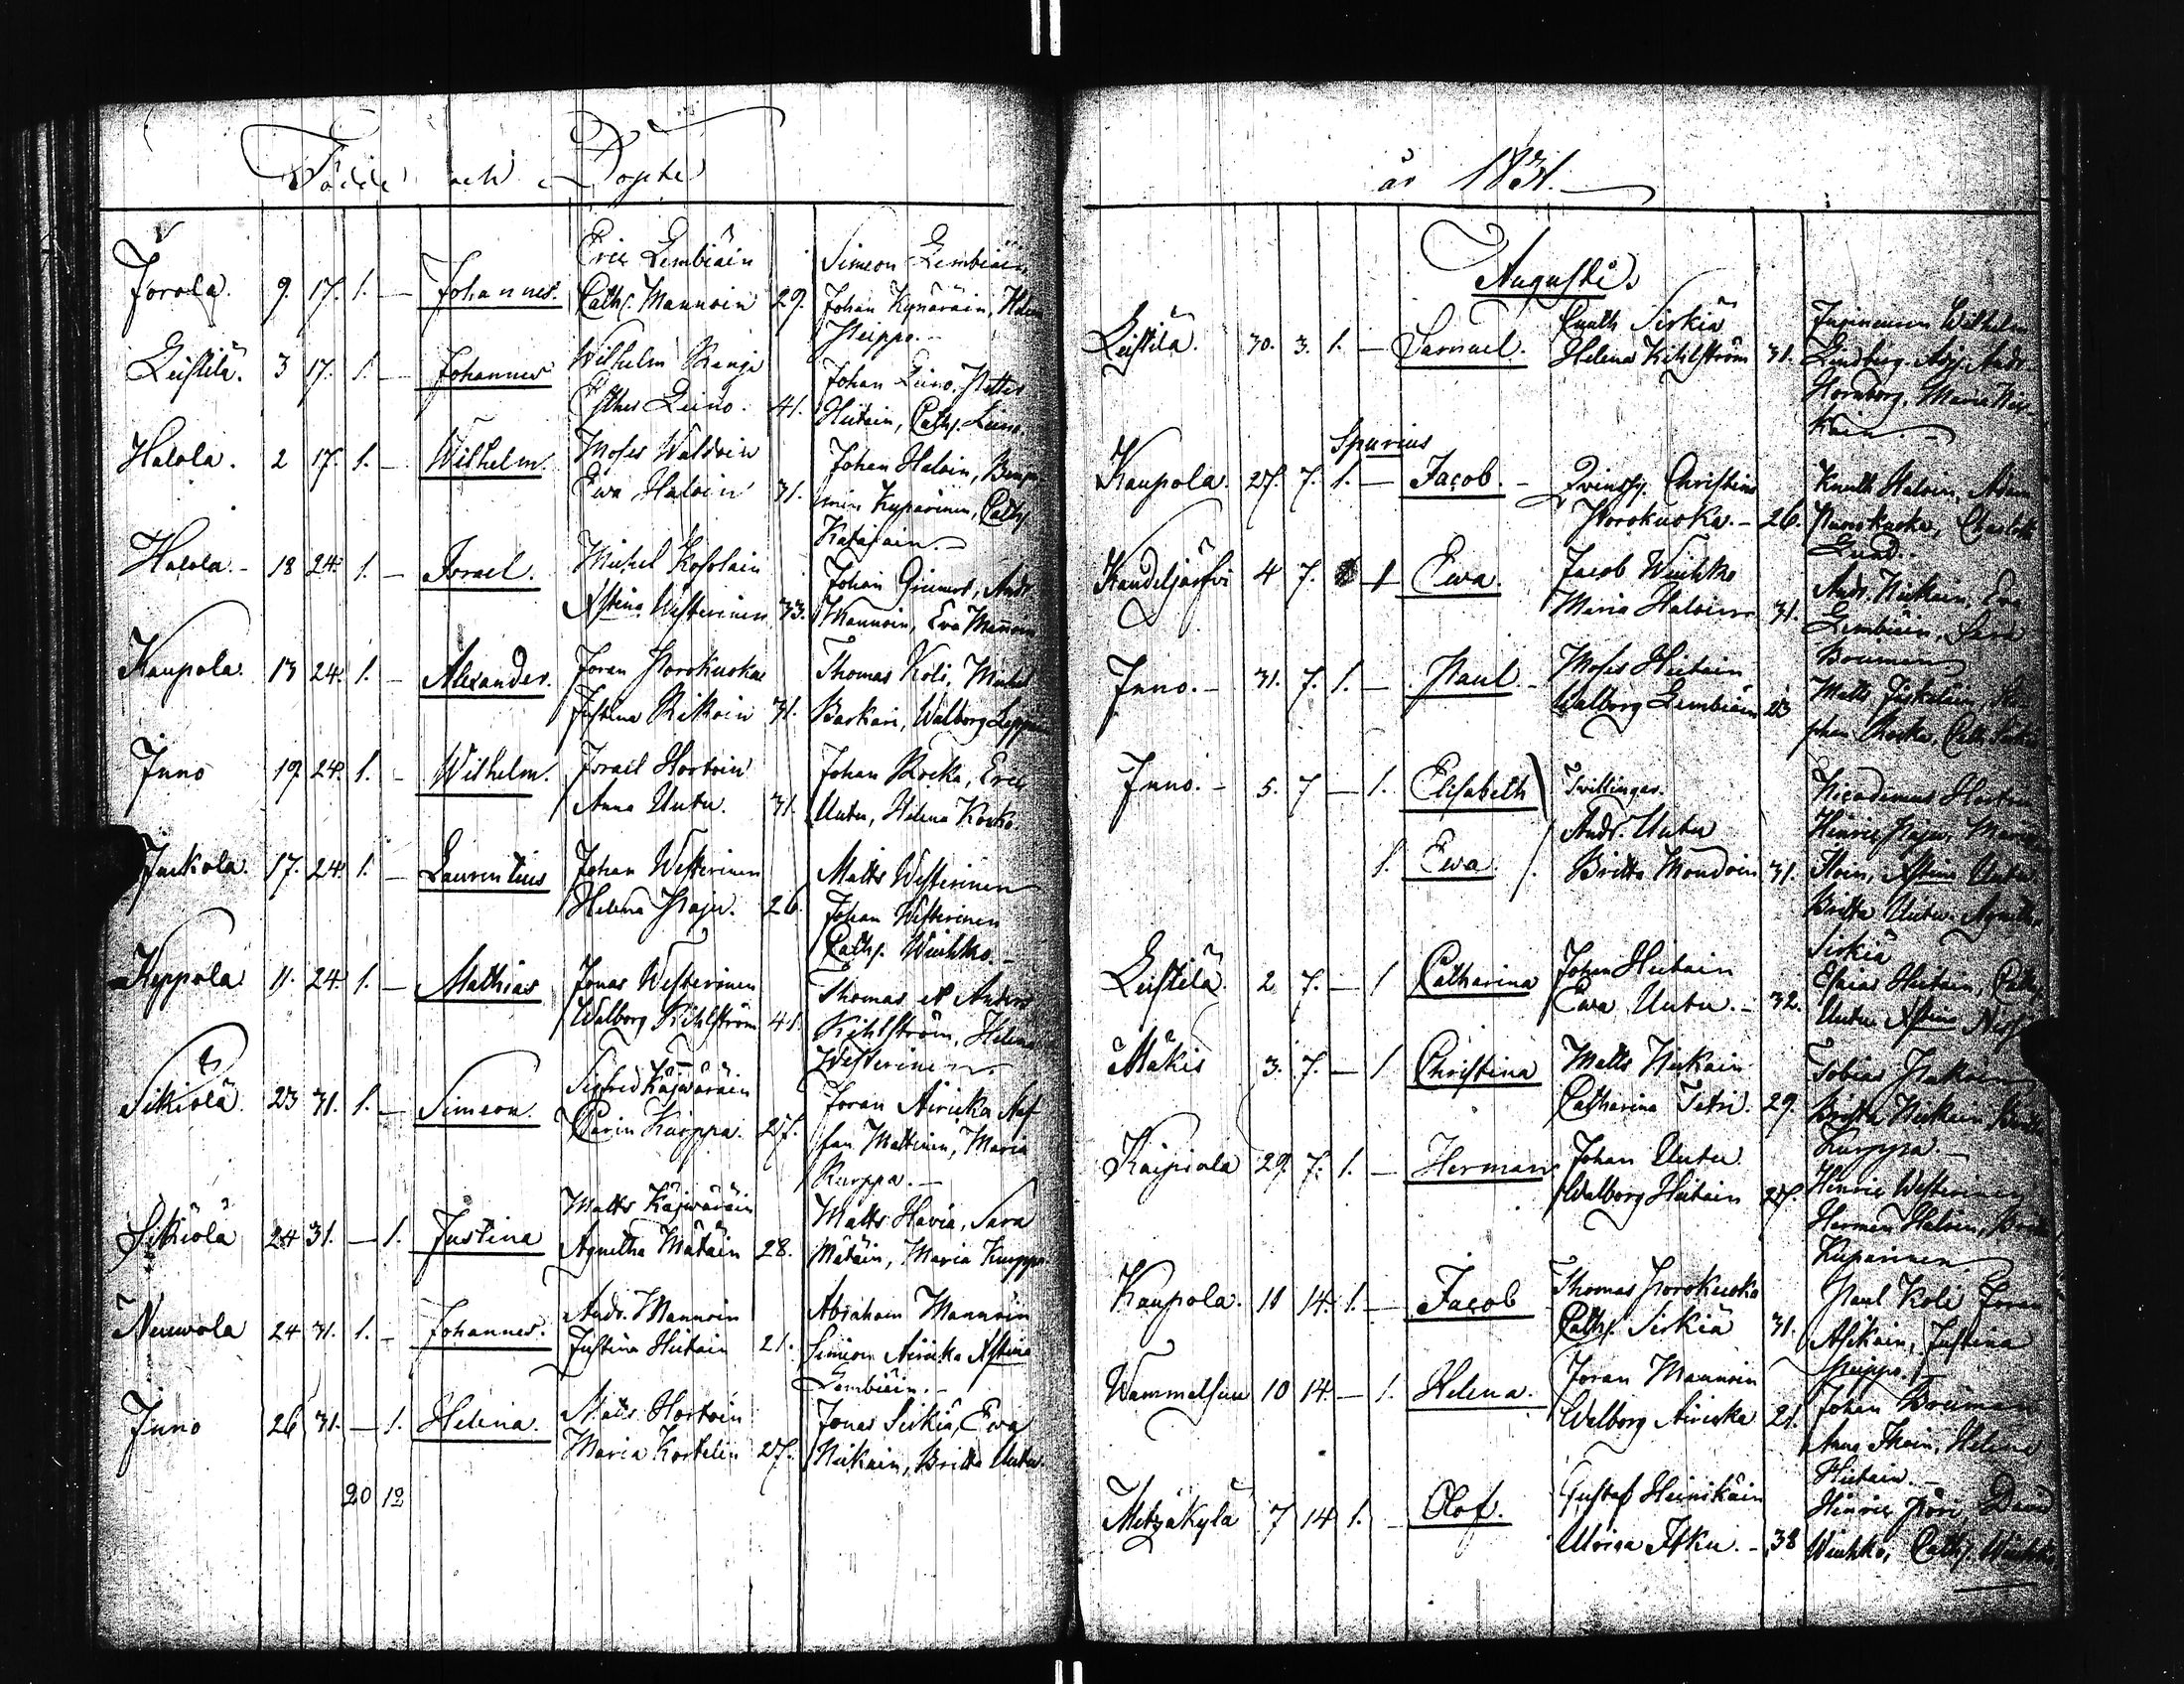 Födde och Döpte
Jorola. 9. 17. 1. — Johannes. Eric Lembiäin
Cath. Mannoin 29. Simeon Lembiäin
Johan Kynäräin, Helena
Peippo. —
Leistilä. 3 17. 1. — Johannes Wilhelm Ranja
Esther Leino. 41. Johan Leino, Petter
Hietain, Cath. Leino.
Halola. 2 17. 1. — Wilhelm. Moses Waldoin
Ewa Haloin 31. Johan Haloin, Benja-
min Kuparinen, Cath.
Katajain. —
Halola. — 18 24. 1. — Israel. Michel Kosolain
Xstina Westerinen 33. Johan Andr.
Mannoin, Eva Mannoin
Kaupola. 13 24. 1. — Alexander. Joran Porokuoka
Justina Rikoin 31. Thomas Koli, Michel
Barkari, Walborg Leppäin
Inno 19. 24. 1. — Wilhelm. Israel Hortoin
Anna Untu. 31. Johan Rocka, Eric
Untu, Helena Kocko.
Juckola. 17. 24. 1. — Laurentius Johan Westerinen
Helena Paju. 26. Matts Westerinen
Johan Westerinen
Cath. Wiuhko. —
Keppola 11. 24. 1. — Mathias Jonas Westerinen
Walborg Kihlström 41. Thomas et Anders
Kihlström, Helena
Westerinen
Sikiölä. 23 31. 1. — Simeon. Sigfred Käjwäräin
Carin Kurppa. 27. Joran Airicka Staf-
fan Mattinen, Maria
Kurppa. —
Sikiölä 24 31. — 1. Justina Matts Käjwäräin
Agnetha Mätäin 28. Matts Havia, Sara
Mätäin, Maria Kurppa.
Neuwola 24 31. 1. — Johannes. Andr. Mannoin
Justina Hietain 21. Abraham Mannoin
Simeon Airicka Xstina
Lembiäin. —
Inno 26 31. — 1. Helena. Matts Hortoin
Maria Kortelin 27. Jonas Sirkiä, Ewa
Nickain, Britta Untu.
20 12
år 1831.
Augusti.
Leistilä. 30. 3. 1. — Samuel. Cnuth Sirkiä
Helena Kihlström 31. Wilhelm
Lindberg, Andr.
Hornborg, Maria
Spurius
Kaupola. 27. 7. 1. — Jacob. — Qvinsp. Christina
Porokuoka. — 26. Knuth Haloin, Adam
Porokuoka, Charlotta
Lund.
Kandeljärfvi 4 7. — 1 Ewa. Jacob Wiuhko
Maria Haloinen 31. Andr. Nickain, Eva
Lembiäin, Sara
Bouman
Inno. — 31. 7. 1. — Paul. — Moses Hietain
Walborg Lembiäin 23 Matts
phan Rocka, Cath.
Inno. — 5. 7 — 1. Elisabeth Tvillingar.
1. Ewa. Andr. Untu
Britta Mondoin 31. Nicodemus Hortoin
Hinric Paju,
Ihoin, Xstina Untu
Britta Untu. Agnetha
Sirkiä
Leistilä. 2 7. — 1 Catharina Johan Hietain
Ewa Untu. — 32. Esaias Hietain, Cath.
Untu Xstina
Mäkis 3. 7. — 1 Christina Matts Nickain
Catharina Tatri. 29. Tobias
Britta Nickain
Kurppa. —
Kaipiala 29. 7. 1. — Herman Johan Untu
Walborg Hietain 27. Hinric Westerinen
Herman Haloin,
Kuparinen
Kaupola. 11 14. 1. — Jacob Thomas Porokuoka
Cath. Sirkiä 31. Paul Koli Joran
Asikain, Justina
Peippo.
Wammelsuu 10 14. — 1. Helena. Joran Mannoin
Walborg Airicka 21. Johan Bouman
Anna Ihoin, Helena
Hietain. —
Metzäkylä 7 14 1. — Olof. Gustaf Heinikäin
Ulrica Itku. — 38 Hinric Pöri,
Wiuhko, Cath. Wiuhko